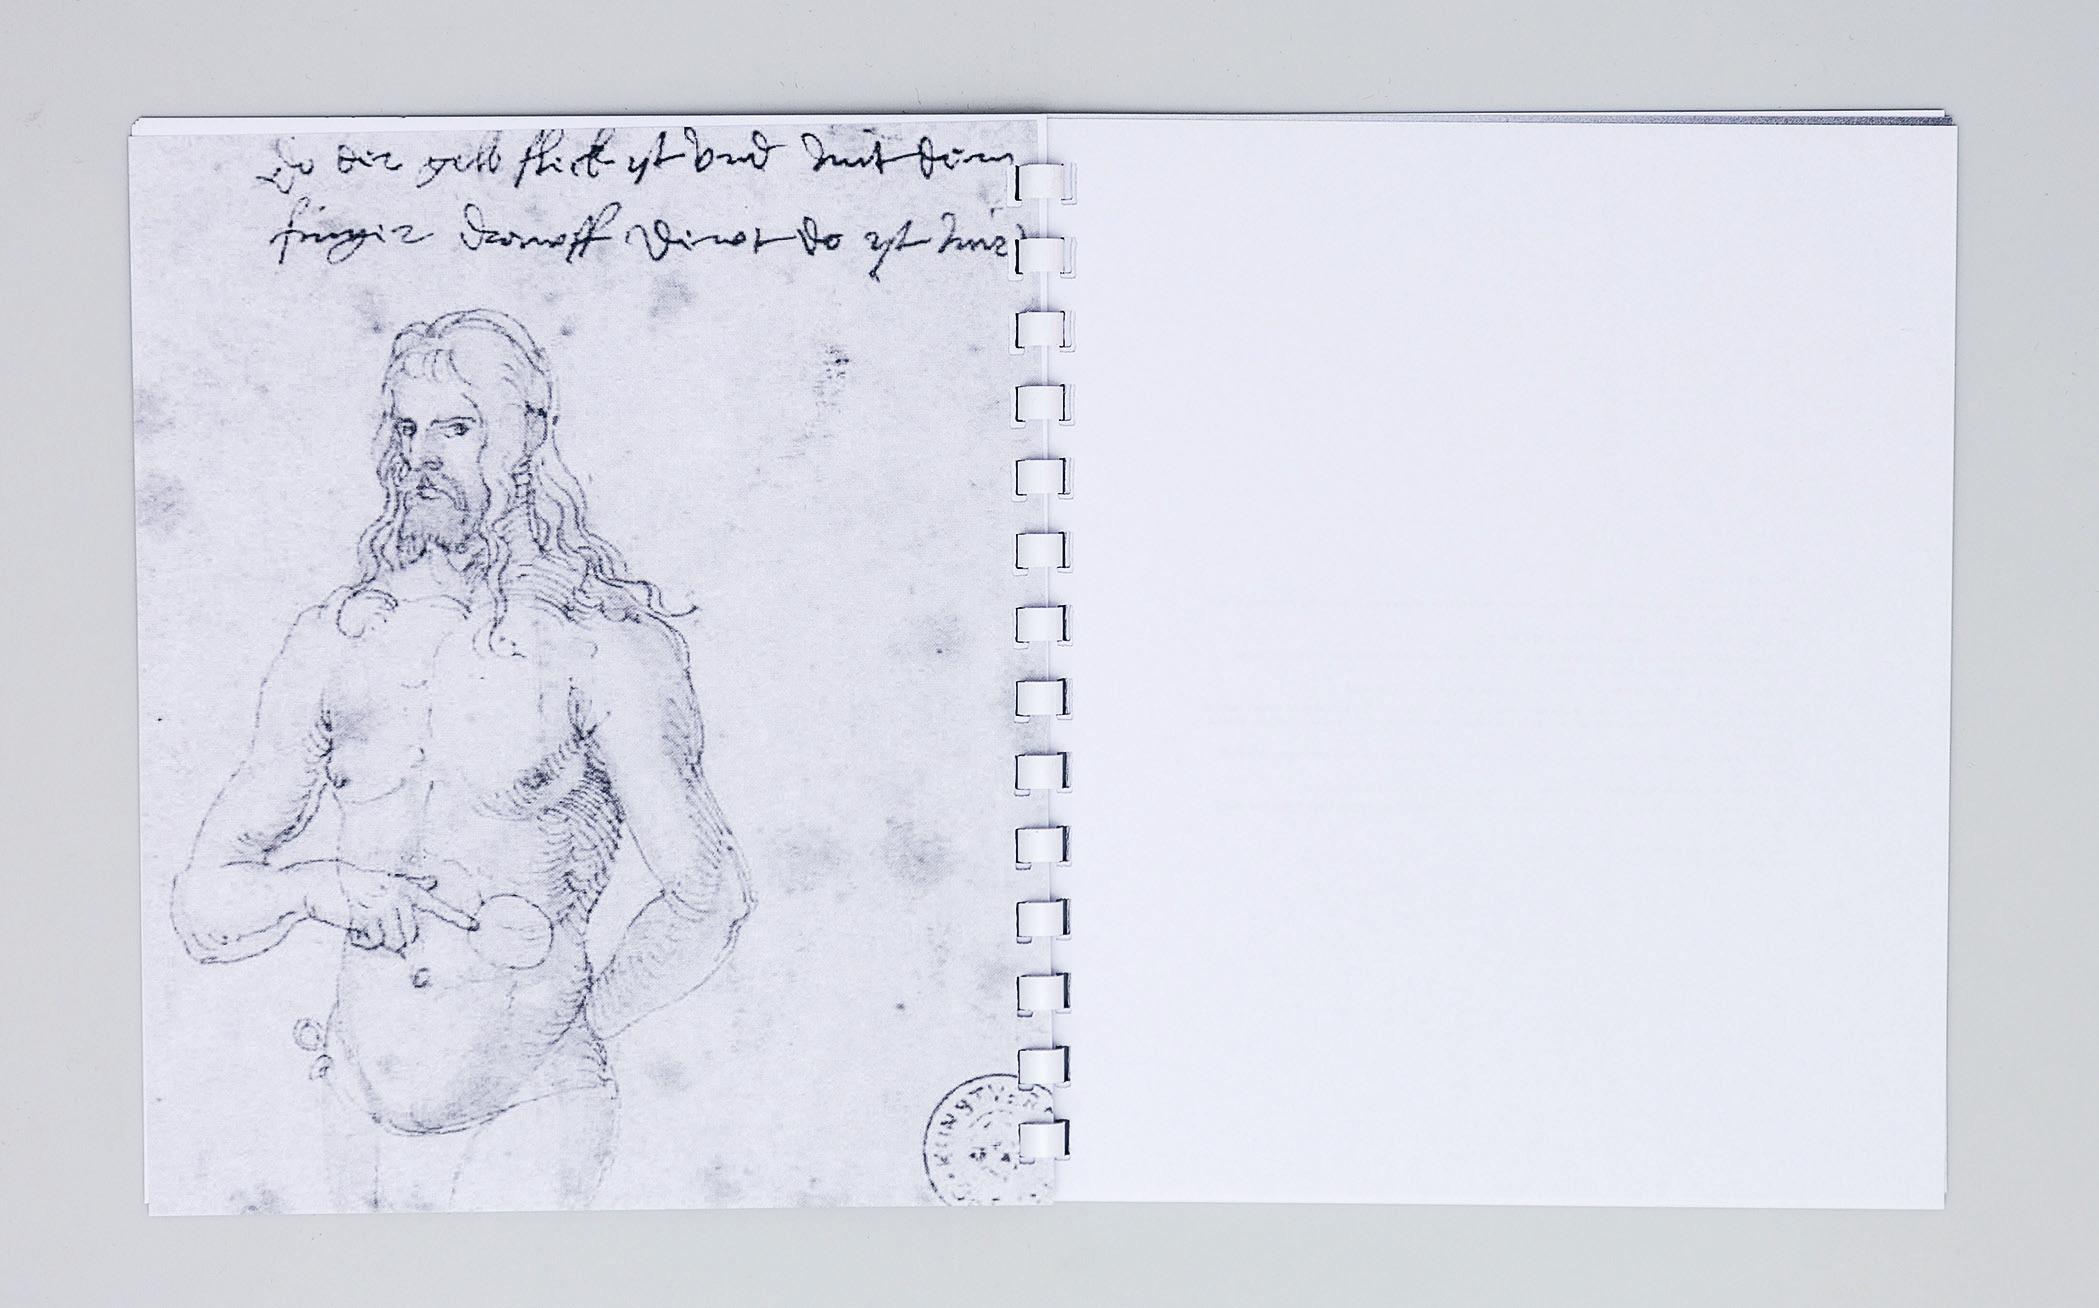 Do der gelb fleck yst vnd mit dem
finger drawff dewt do yst mir
KUNSTVER